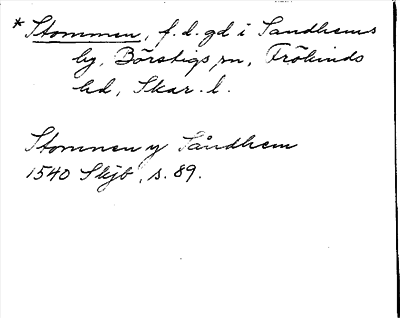 * Stommen, f.d. gd i Sandhems
by, Börstigs sn, Frökinds
hd, Skar. l.
Stommen y Såndhem
1540 Skjb, s. 89.